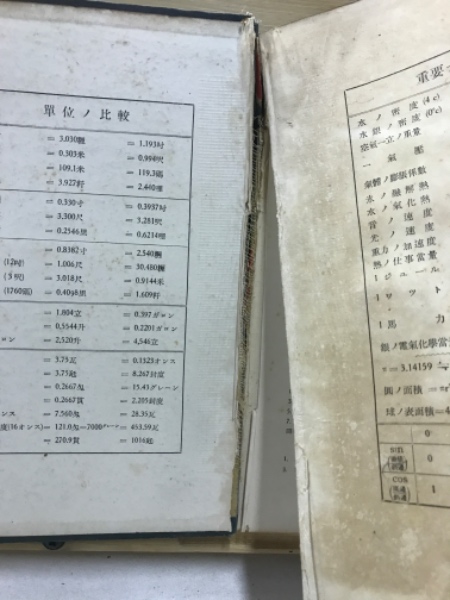 單位ノ比較
= 3.030糎 = 1.193吋
= 0.303米 = 0.994呎
= 109.1米 = 119.3碼
= 3.927粁 = 2.440哩
= 0.330寸 = 0.3937吋
= 3.300尺 = 3.281呎
= 0.2546里 = 0.6214哩
= 0.8382寸 = 2.540糎
(12吋) = 1.006尺 = 30.480糎
(3呎) = 3.018尺 = 0.9144米
(1760碼) = 0.4098里 = 1.609粁
= 1.804立 = 0.397ガロン
= 0.5544升 = 0.2201ガロン
= 2.520升 = 4.546立
= 3.75瓦 = 0.1323オンス
= 3.75瓩 = 8.267封度
= 0.2667匁 = 15.43グレーン
= 0.2667貫 = 2.205封度
ンス = 7.560匁 = 28.35瓦
度(16オンス) = 121.0匁=7000グレーン = 453.59瓦
= 270.9貫 = 1016瓩
重要
水ノ密度(4°c)
水銀ノ密度(0°c)
空氣一立ノ重量
一氣壓
氣體ノ膨脹係數
氷ノ融解熱
水ノ氣化熱
音ノ速度
光ノ速度
重力ノ加速度
熱ノ仕事當量
1ジュール
1ワット
1馬力
銀ノ電氣化學當
π = 3.14159
圓ノ面積 = πr
球ノ表面積 = 4
0
sin 0
cos 1